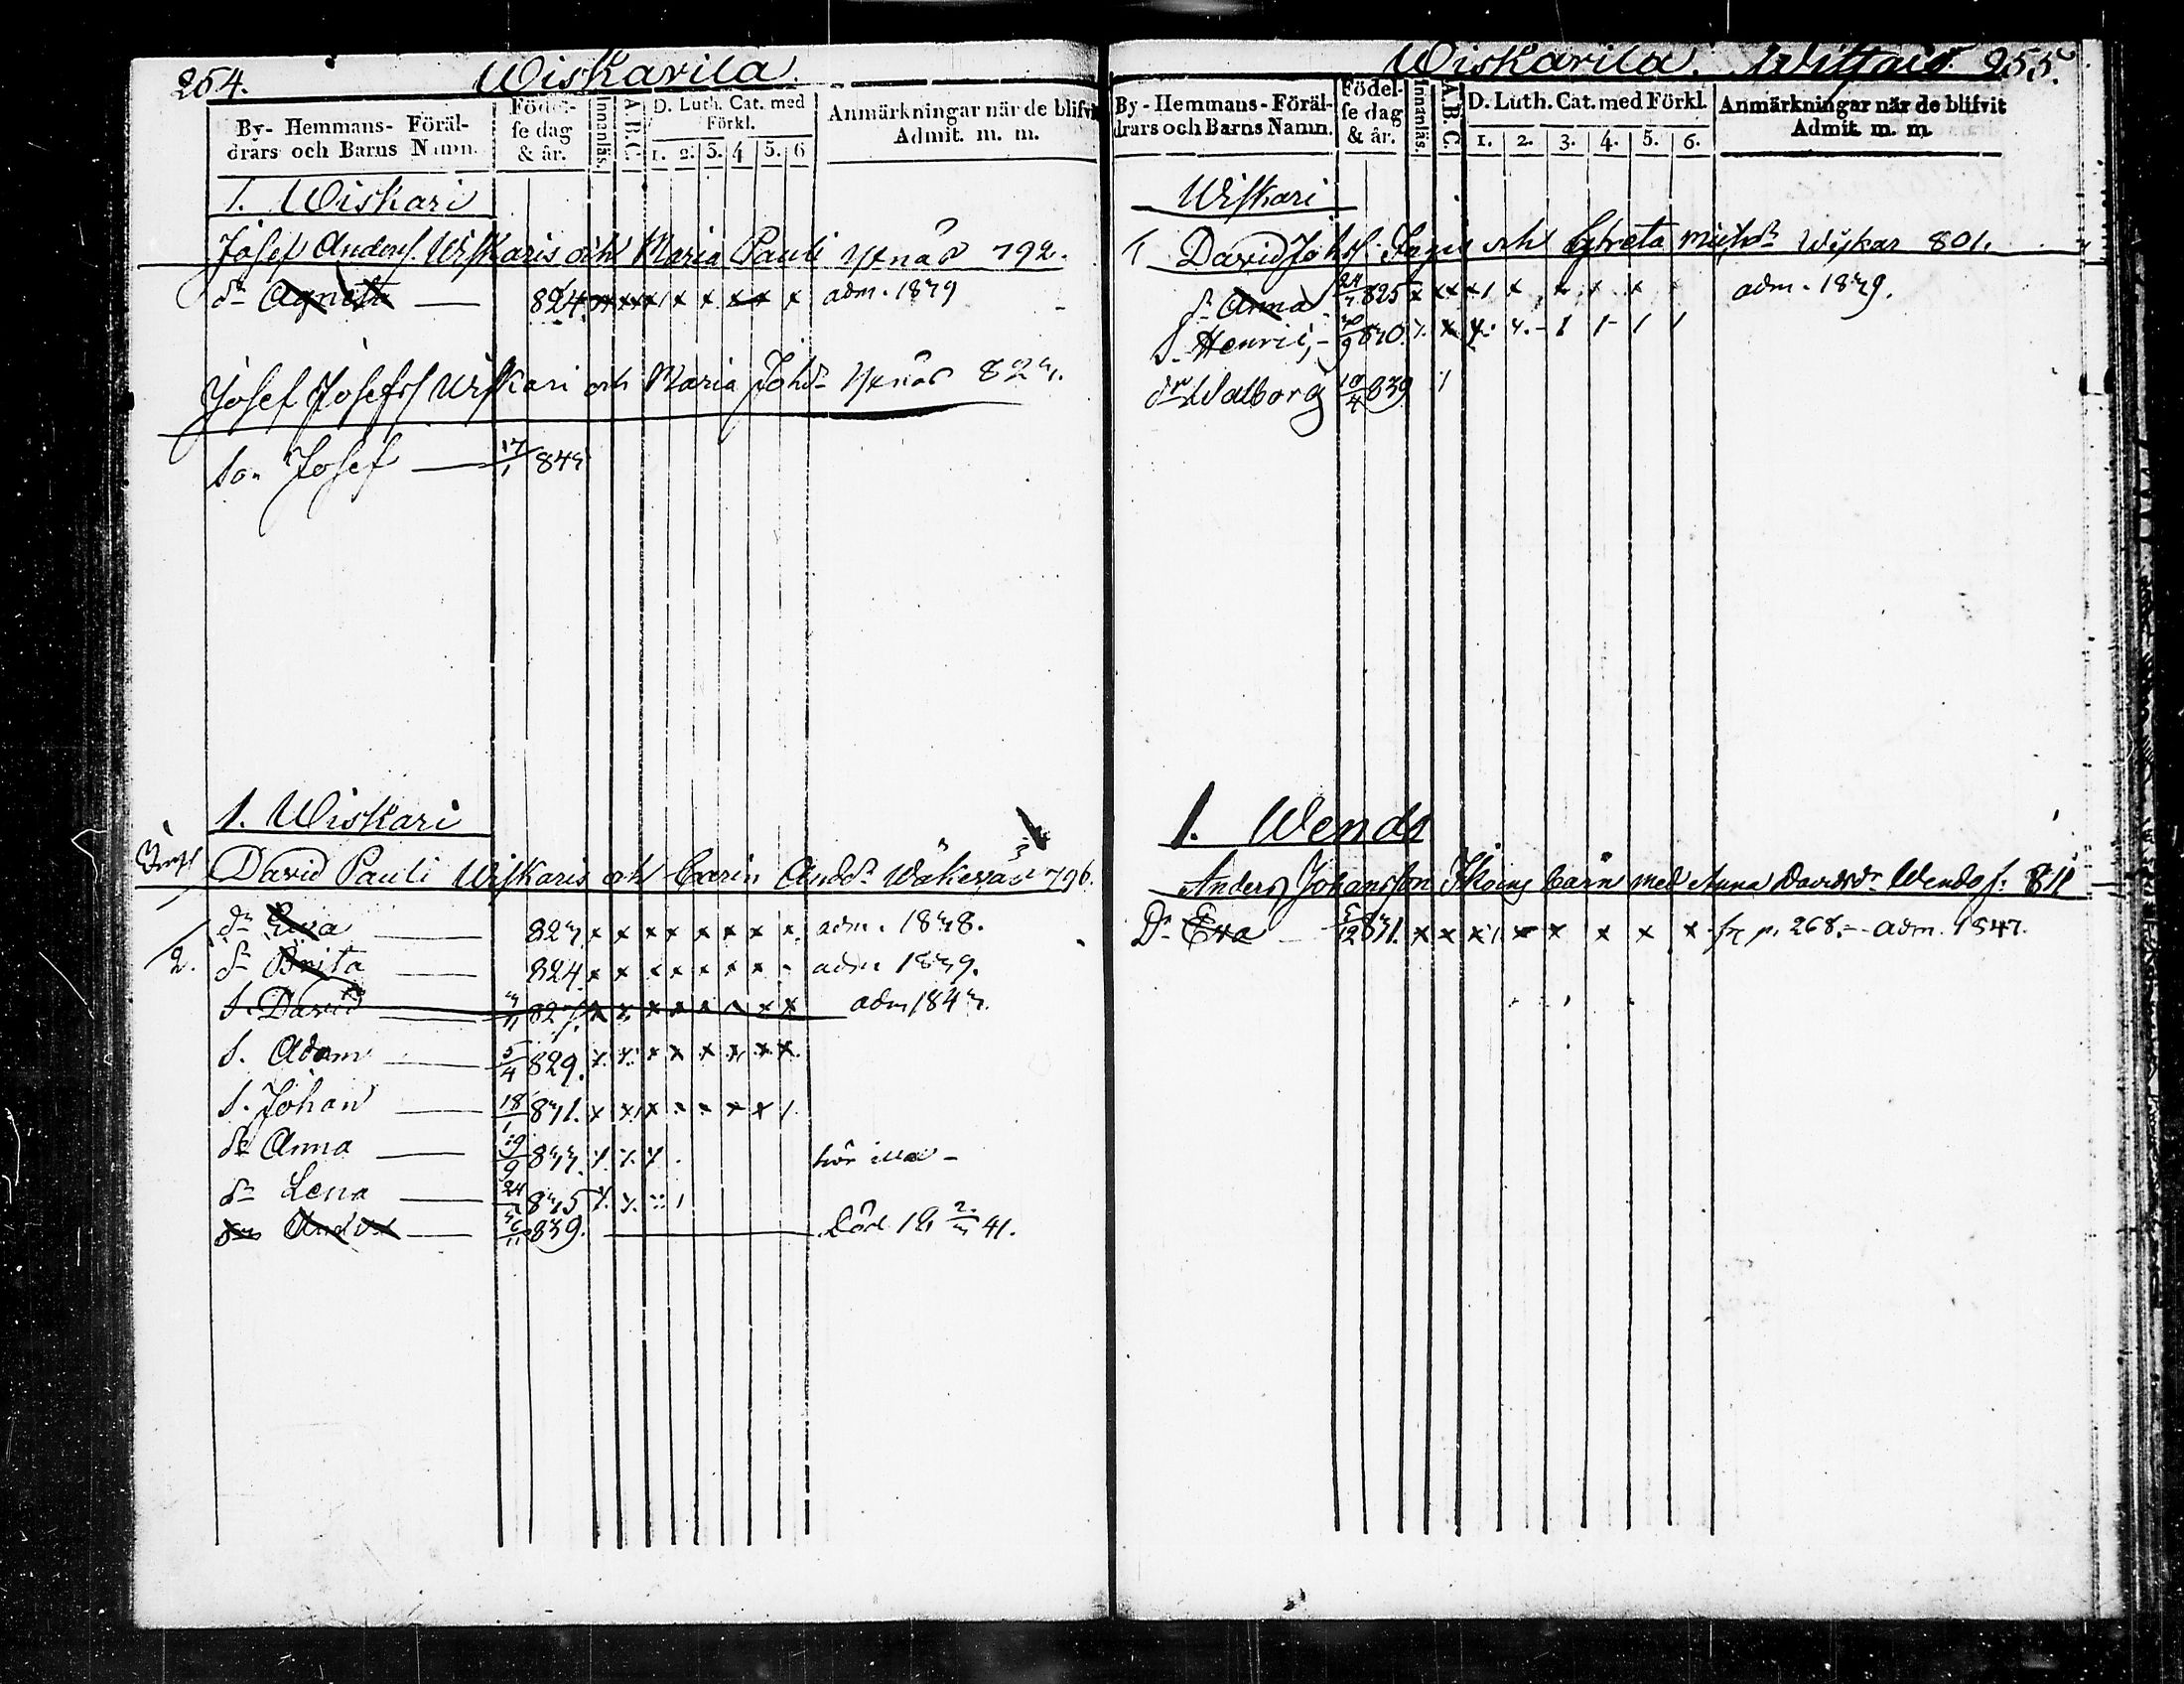 254. Wiskarila.
By- Hemmans- Föräl-
drars och Barns Namn.
Födel-
se dag
& år.
Innanläs.
A.B.C.
D. Luth. Cat. med
Förkl.
1. 2. 3. 4 5. 6
Anmärkningar när de blifvit
Admit. m. m.
1. Wiskari
Josef Anders. Wiskaris och Maria Pauli 792.
dr Agneta 824 x x x x 1 x x x x x adm. 1839
Josef Josefs Wiskari och Maria Johdr 823.
son Josef 17/1 843
1. Wiskari
David Pauli Wiskaris och Carin Anddr 796.
dr Eva 823 x x x x x x x x adm. 1838.
2. dr Brita 824 x x x x x x x adm 1839.
s. David 3/11 827. x x x x x x x x adm 1843.
s. Adam 5/4 829. x x x x x x x x
s. Johan 18/1 831. x x1 x x x x x 1
dr Anna 833. hör illa -
dr Lena 24 835
839. Död 41.
Wiskarila. 255.
By-Hemmans-Föräl-
drars och Barns Namn.
Födel-
se dag
& år.
Innanläs.
A.B.C.
D. Luth. Cat. med Förkl.
1. 2. 3. 4. 5. 6.
Anmärkningar när de blifvit
Admit. m. m.
Wiskari
David Johs. och Greta Wiskar 801.
dr Anna 825 x x x x 1 x x x x adm. 1839.
s. Henric 30/9 830.
dr Walborg 839
1. Wends
Anders Johansson barn med Anna Davidsdr Wends f. 811
Dr Eva 5/12 831. x x x 1 x x x x x fr p. 268. - adm. 1847.